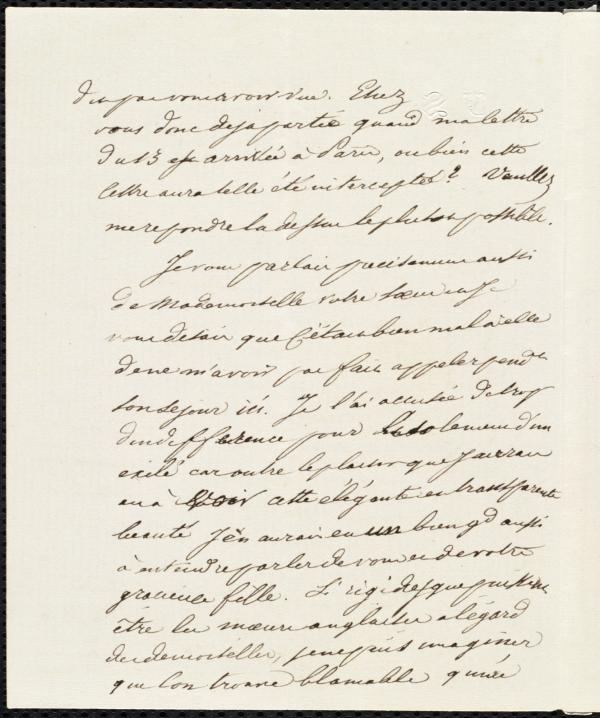 du pas vous avoir vue. Etiez
vous donc deja partie quand ma lettre
du 13 est arrivée à Paris, ou bien cette
lettre aura telle été interceptée? Veuillez
me repondre la dessus le plutot possible.
Je vous parlais precisement aussi
de Mademoiselle votre soeur et je
vous disais que c'etait bien mal à elle
de ne m'avoir pas fait appeler pendt
son sejour ici. Je l'ai accusée de trop
d'indifference pour l'isolement d'un
exilé car outre le plaisir que j'aurais
eu à voir cette élégante et transparente
beauté j'en aurais eu un bien gd aussi
à entendre parler de vous et de votre
gracieuse fille. Si rigides que puissent
être les moeurs anglaises a l'égard
des demoiselles, je ne puis imaginer
que l'on trouve blamable qu'une